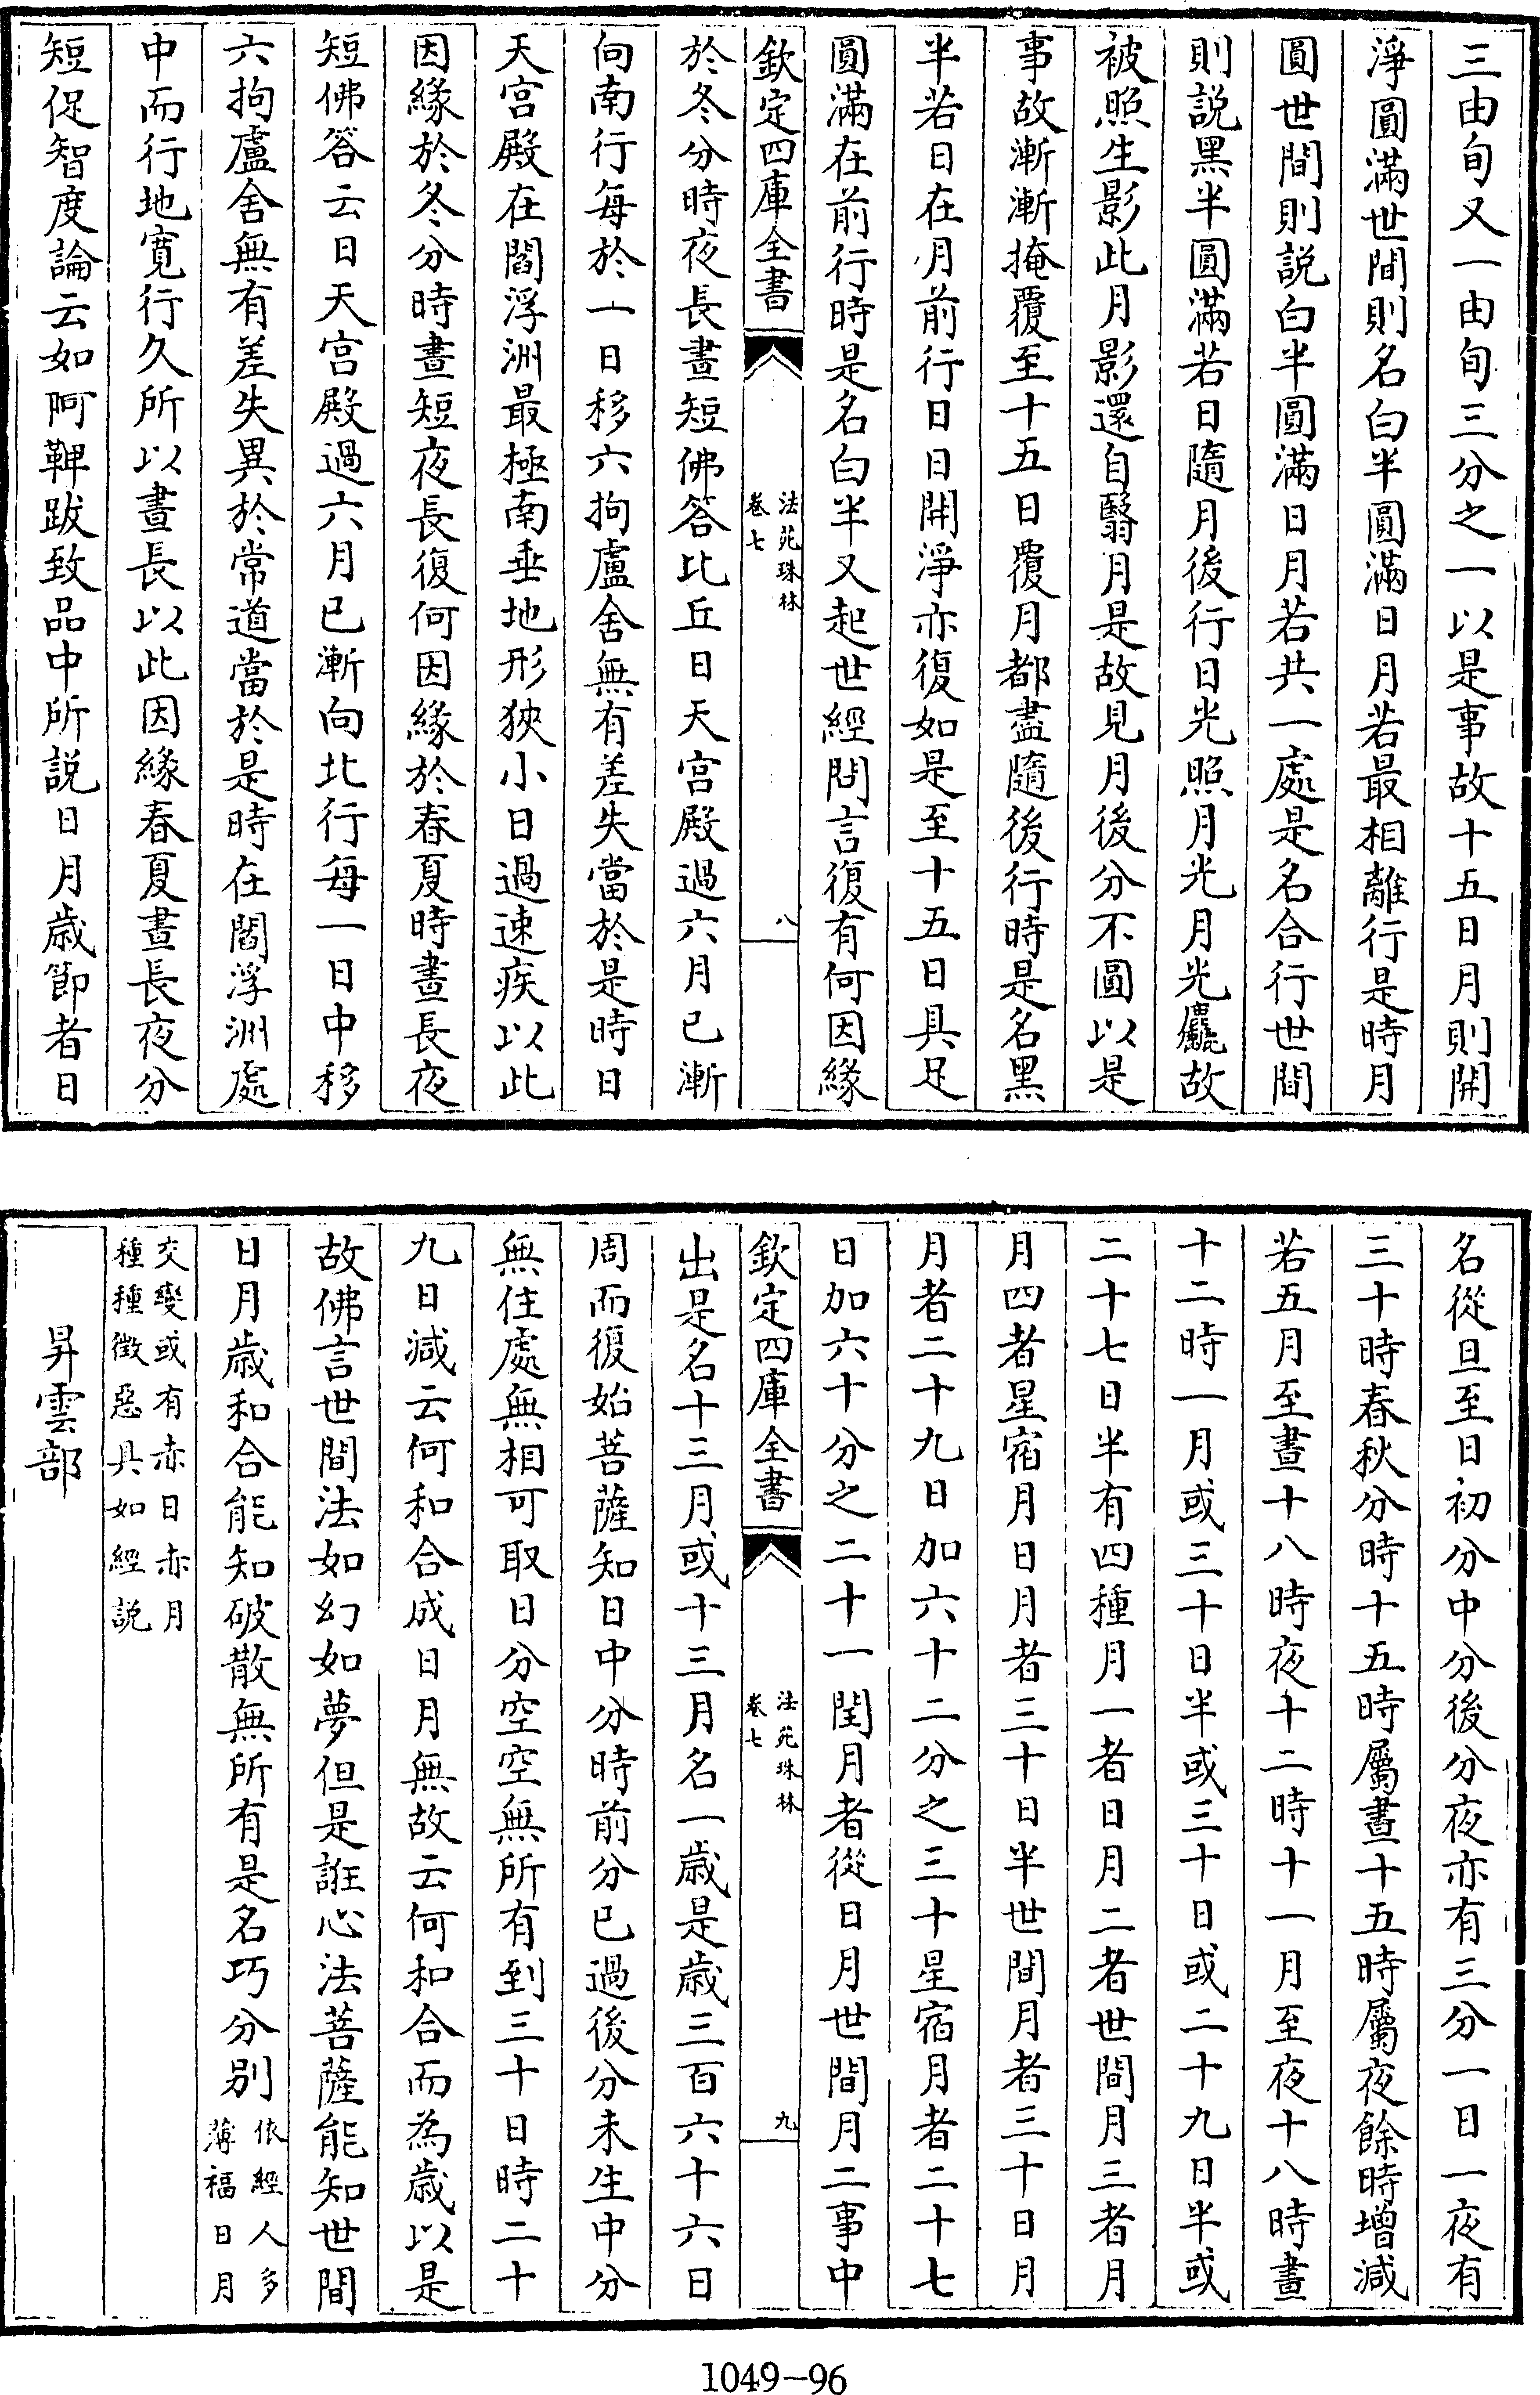 三由旬又一由旬三分之一以是事故十五日月則開
淨圓滿世間則名白半圓滿日月若最相離行是時月
圓世間則説白半圓滿日月若共一處是名合行世間
則説黑半圓滿若日隨月後行日光照月光月光麤故
被照生影此月影還自翳月是故見月後分不圓以是
事故漸漸掩覆至十五日覆月都盡隨後行時是名黑
半若日在月前行日日開淨亦復如是至十五日具足
圓滿在前行時是名白半又起世經問言復有何因緣
欽定四庫全書
法苑珠林
卷七
八
於冬分時夜長晝短佛答比丘日天宫殿過六月已漸
向南行每於一日移六拘盧舍無有差失當於是時日
天宫殿在閻浮洲最極南垂地形狹小日過速疾以此
因緣於冬分時晝短夜長復何因緣於春夏時晝長夜
短佛答云日天宫殿過六月已漸向北行每一日中移
六拘盧舍無有差失異於常道當於是時在閻浮洲處
中而行地寛行久所以晝長以此因緣春夏晝長夜分
短促智度論云如阿鞞跋致品中所説日月歲節者日
名從旦至日初分中分後分夜亦有三分一日一夜有
三十時春秋分時十五時屬晝十五時屬夜餘時增減
若五月至晝十八時夜十二時十一月至夜十八時晝
十二時一月或三十日半或三十日或二十九日半或
二十七日半有四種月一者日月二者世間月三者月
月四者星宿月日月者三十日半世間月者三十日月
月者二十九日加六十二分之三十星宿月者二十七
日加六十分之二十一閏月者從日月世間月二事中
欽定四庫全書
法苑珠林
卷七
九
出是名十三月或十三月名一歲是歲三百六十六日
周而復始菩薩知日中分時前分已過後分未生中分
無住處無相可取日分空空無所有到三十日時二十
九日減云何和合成日月無故云何和合而為歲以是
故佛言世間法如幻如夢但是誑心法菩薩能知世間
日月歲和合能知破散無所有是名巧分別依經人多
薄福日月
交變或有赤日赤月
種種徴惡具如經説
昇雲部
1049-96